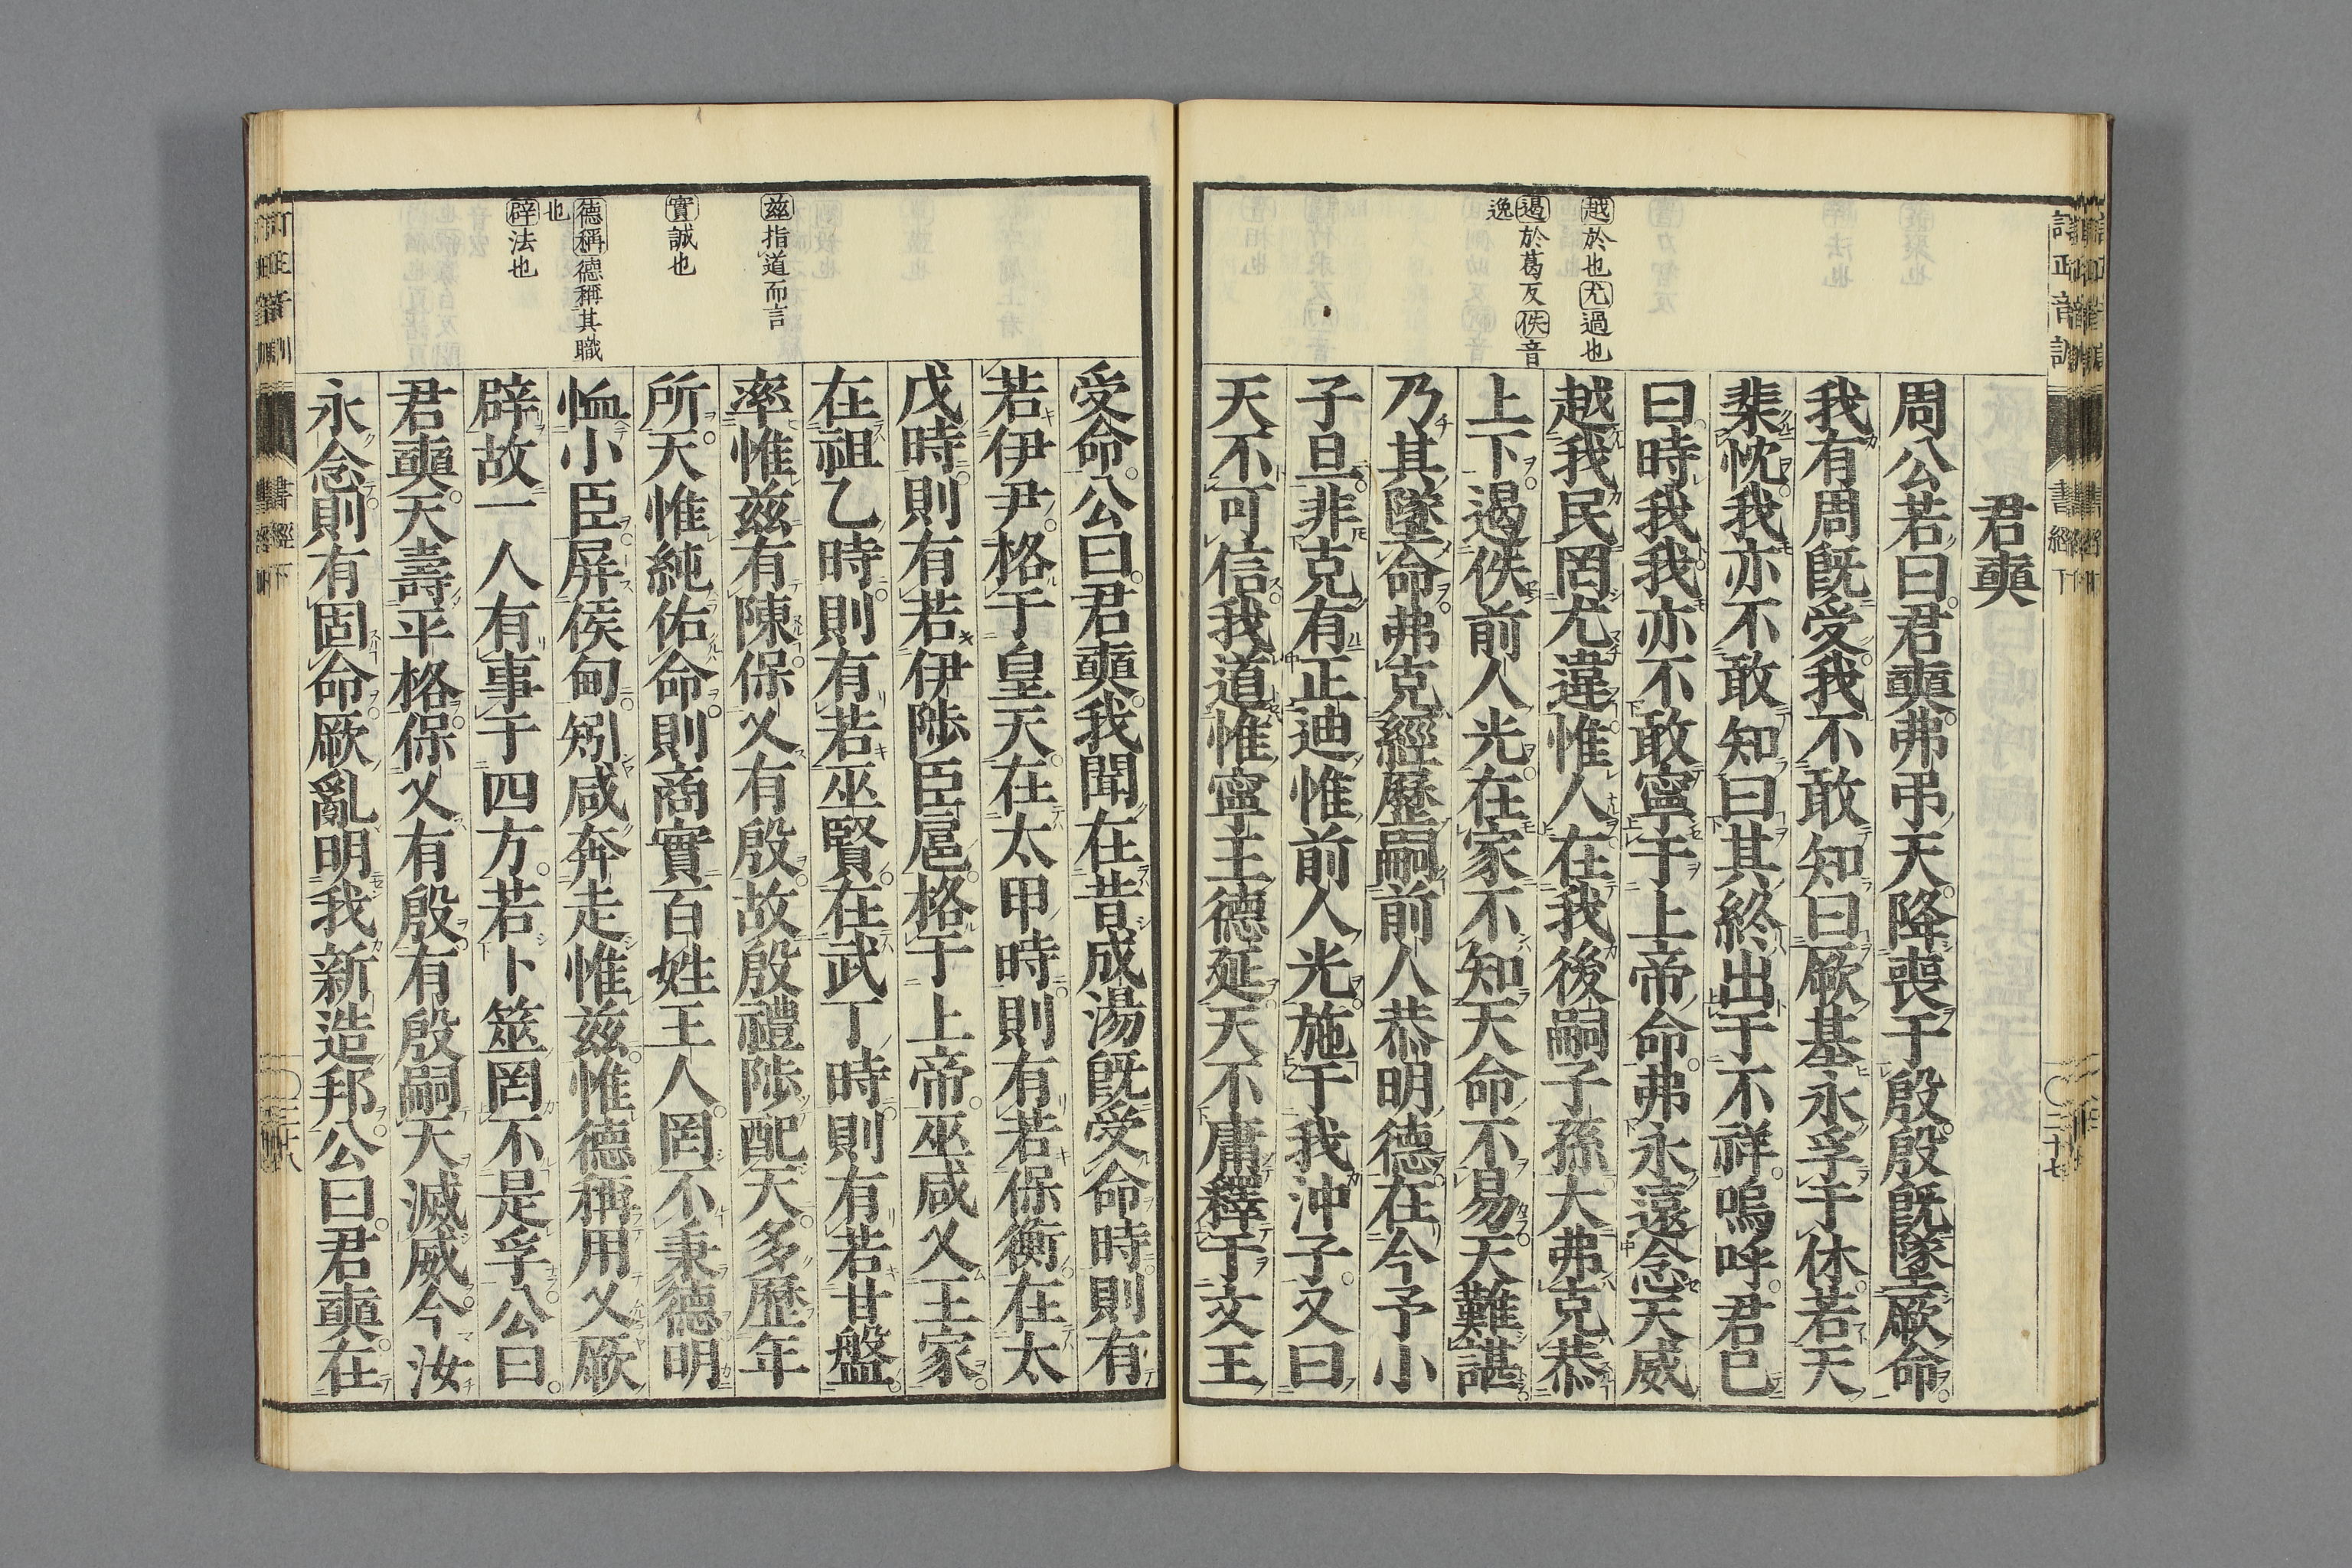 越於也尤過也
遏於葛反佚音
逸
君奭
周公若曰君奭弗弔天降喪于殷殷既墜厥命
我有周既受我不敢知曰厥基永孚于休若天
棐忱我亦不敢知曰其終出于不祥嗚呼君已
曰時我我亦不敢寧于上帝命弗永遠念天威
越我民罔尤違惟人在我後嗣子孫大弗克恭
上下遏佚前人光在家不知天命不易天難諶
乃其墜命弗克經歷嗣前人恭明德在今予小
子旦非克有正迪惟前人光施于我沖子又曰
天不可信我道惟寧王德延天不庸釋于文王
茲指道而言
實誠也
德稱德稱其職
也
辟法也
受命公曰君奭我聞在昔成湯既受命時則有
若伊尹格于皇天在太甲時則有若保衡在太
戊時則有若伊陟臣扈格于上帝巫咸乂王家
在祖乙時則有若巫賢在武丁時則有若甘盤
率惟茲有陳保乂有殷故殷禮陟配天多歷年
所天惟純佑命則商實百姓王人罔不秉德明
恤小臣屏侯甸矧咸奔走惟茲惟德稱用乂厥
辟故一人有事于四方若卜筮罔不是孚公曰
君奭天壽平格保乂有殷有殷嗣天滅威今汝
永念則有固命厥亂明我新造邦公曰君奭在
書經下
二十七